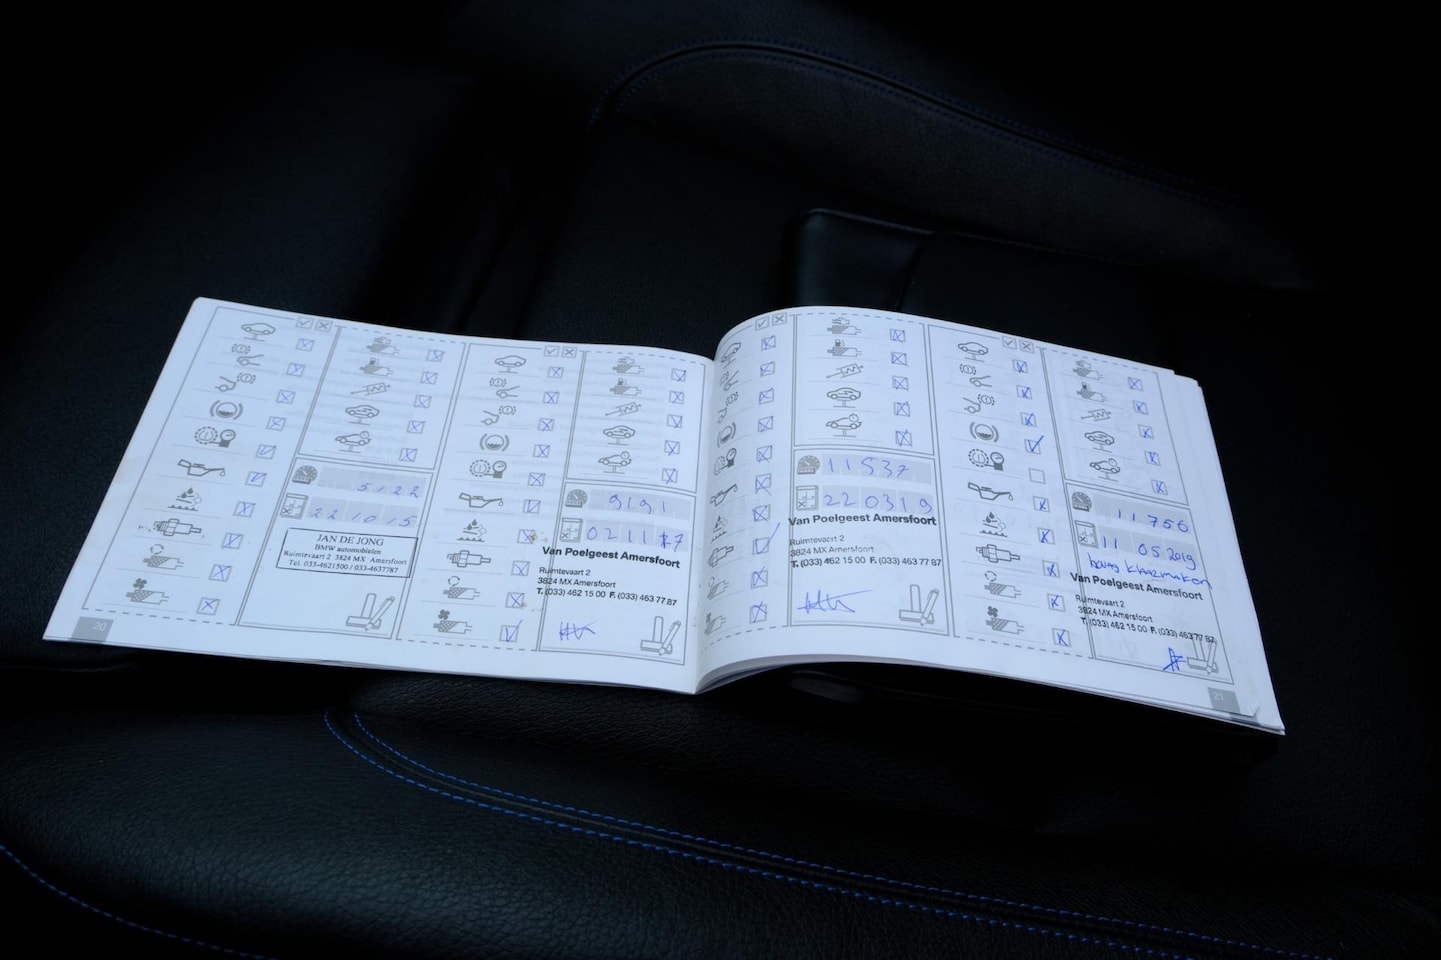 5122
22 10 15
JAN DE JONG
BMW automobielen
Ruimtevaart 2 3824 MX Amersfoort
Tel. 033-4621500 / 033-4637787
20
9191
02 11 17
Van Poelgeest Amersfoort
Ruimtevaart 2
3824 MX Amersfoort
T. (033) 462 15 00 F. (033) 463 77 87
11537
22 03 19
Van Poelgeest Amersfoort
Ruimtevaart 2
3824 MX Amersfoort
T. (033) 462 15 00 F. (033) 463 77 87
11756
11 05 2019
bovag klaarmaken
Van Poelgeest Amersfoort
Ruimtevaart 2
3824 MX Amersfoort
T. (033) 462 15 00 F. (033) 463 77 87
21